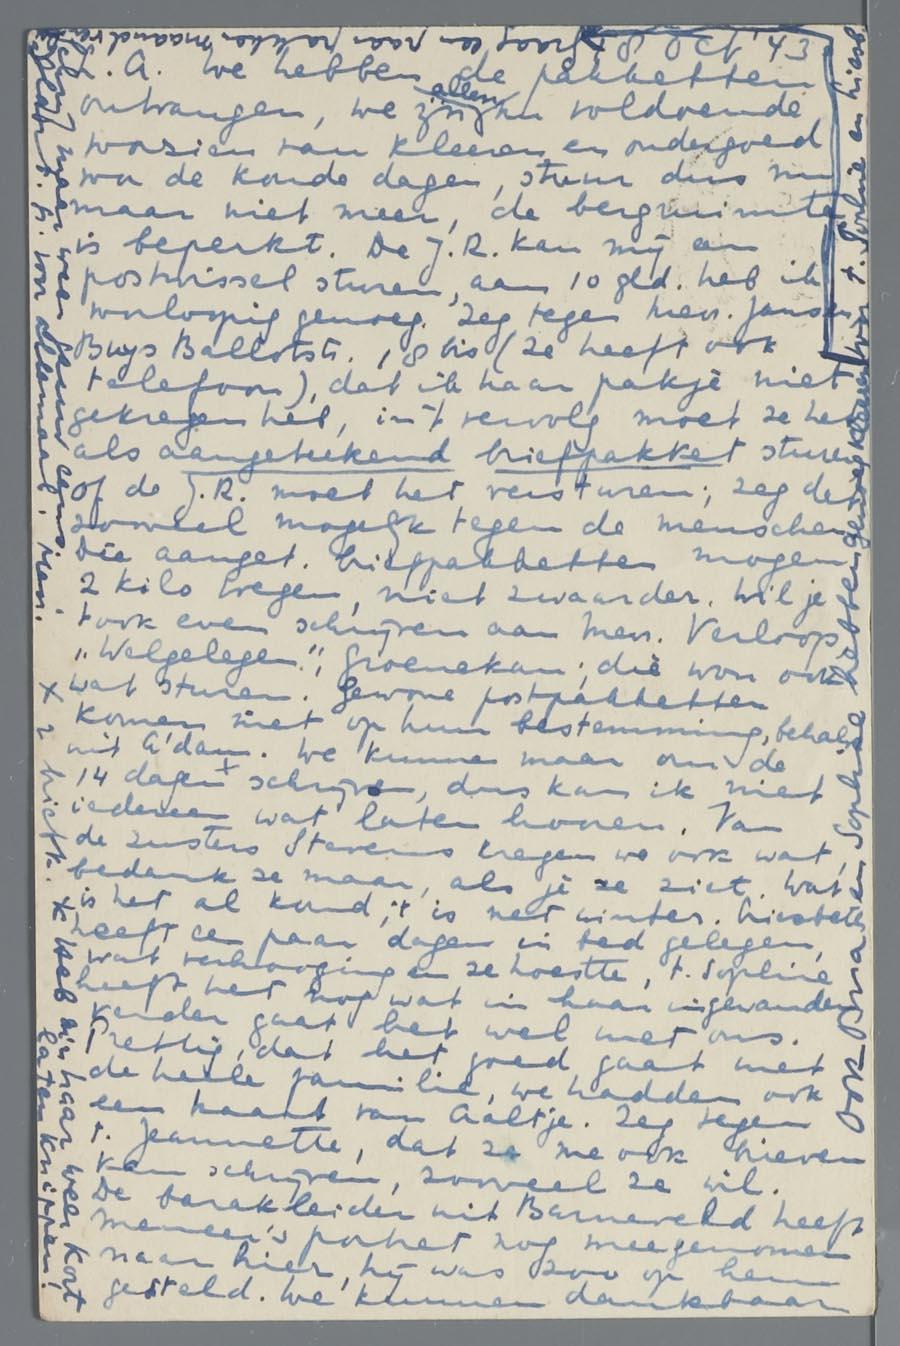 8 Oct. '43
L. A. We hebben de pakketten
ontvangen, we zijn allen voldoende
voorzien van kleeren en ondergoed
voor de koude dagen, stuur dus nu
maar niet meer, de bergruimte
is beperkt. De J.R. kan mij een
postwissel sturen, aan 10 gld. heb ik
voorloopig genoeg. Zeg tegen mevr. Jansen
Buys Ballotstr., 8 bis (ze heeft ook
telefoon), dat ik haar pakje niet
gekregen heb, in 't vervolg moet ze het
als aangeteekend briefpakket sturen
of de J.R. moet het versturen; zeg dat
zooveel mogelijk tegen de menschen
Die aanget. briefpakketten mogen
2 kilo wegen, niet zwaarder. Wil je
't ook even schrijven aan mevr. Verloop,
"Welgelegen", Groenekan; die wou ook
wat sturen. Gewone postpakketten
komen niet op hun bestemming, behalve
uit A'dam. We kunnen maar om de
14 dagen + schrijven, dus kan ik niet
iedereen wat laten hooren. Van
de zusters Stevens kregen we ook wat,
bedank ze maar, als je ze ziet. Wat
is het al koud, 't is net winter. Liesbeth
heeft een paar dagen in bed gelegen,
wat verhooging en ze hoestte, t. Sophie
heeft het nog wat in haar ingewanden
Verder gaat het wel met ons.
Prettig, dat het goed gaat met
de heele familie, we hadden ook
een kaart van Aaltje. Zeg tegen
t. Jeannette, dat ze me ook brieven
kan schrijven, zooveel ze wil.
De barakleider uit Barneveld heeft
meneer's portret nog meegenomen
naar hier, hij was zoo op hem
gesteld. We kunnen dankbaar
x 2 briefk. x Heb m'n haar weer kort
laten knippen!
voor t. Sophie en Liesb.